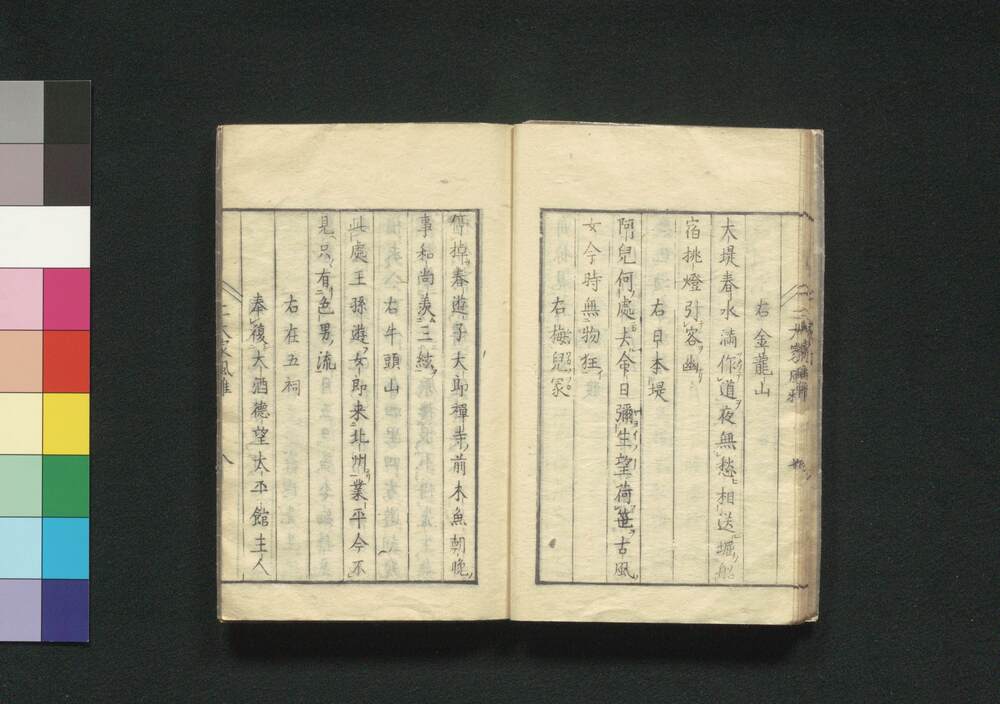 右金龍山
大堤春水満你道夜無愁相送堀船
宿挑燈引客幽
右日本堤
阿兒何處去命日彌生望荷笹古風
女今時無物狂
右梅兒冢
停掉春遊子大郎禪寺前木魚朝晚
事和尚羨三絃
右牛頭山
此處王孫遊女即来北州業平今不
見只有色男流
右在五祠
奉復大酒德望太平館主人
八